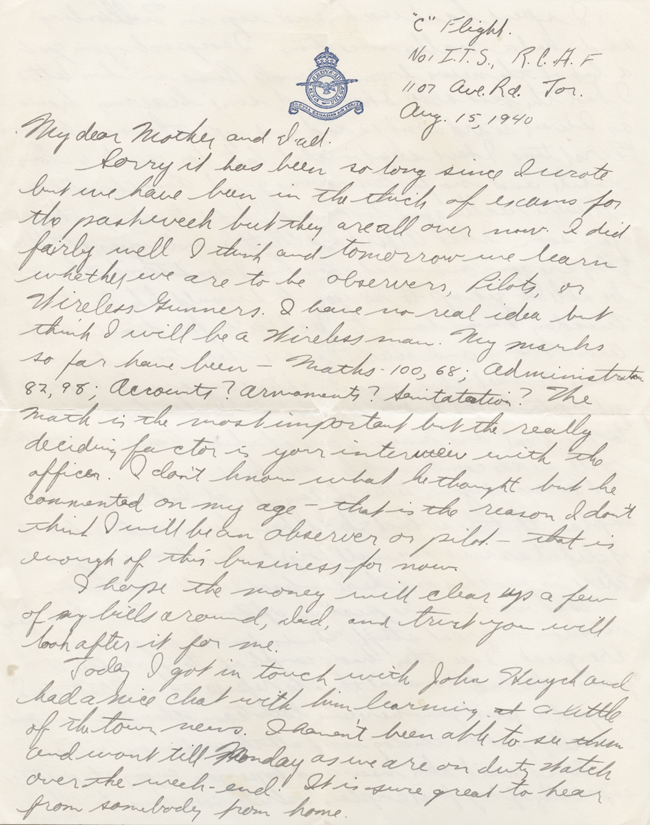 "C" Flight.
No. 1 I.T.S., R.C.A.F
1107 Ave. Rd. Tor.
Aug. 15, 1940
My dear Mother and Dad.
Sorry it has been so long since I wrote
but we have been in the thick of exams for
the past week but they are all over now. I did
fairly well I think and tomorrow we learn
whether we are to be observers, Pilots, or
Wireless Gunners. I have no real idea but
think I will be a Wireless man. My marks
so far have been - Maths - 100, 68; Administration
82, 98; Accounts? Armaments? Sanitatation? The
Math is the most important but the really
deciding factor is your interview with the
officer. I don't know what he thought but he
commented on my age - that is the reason I don't
think I will be an observer or pilot. - that is
enough of this business for now.
I hope the money will clear up a few
of my bills around, Dad, and trust you will
look after it for me.
Today I got in touch with John and
had a nice chat with him learning a little
of the town news. I haven't been able to see them
and wont till Monday as we are on duty watch
over the week-end. It is sure great to hear
from somebody from home.